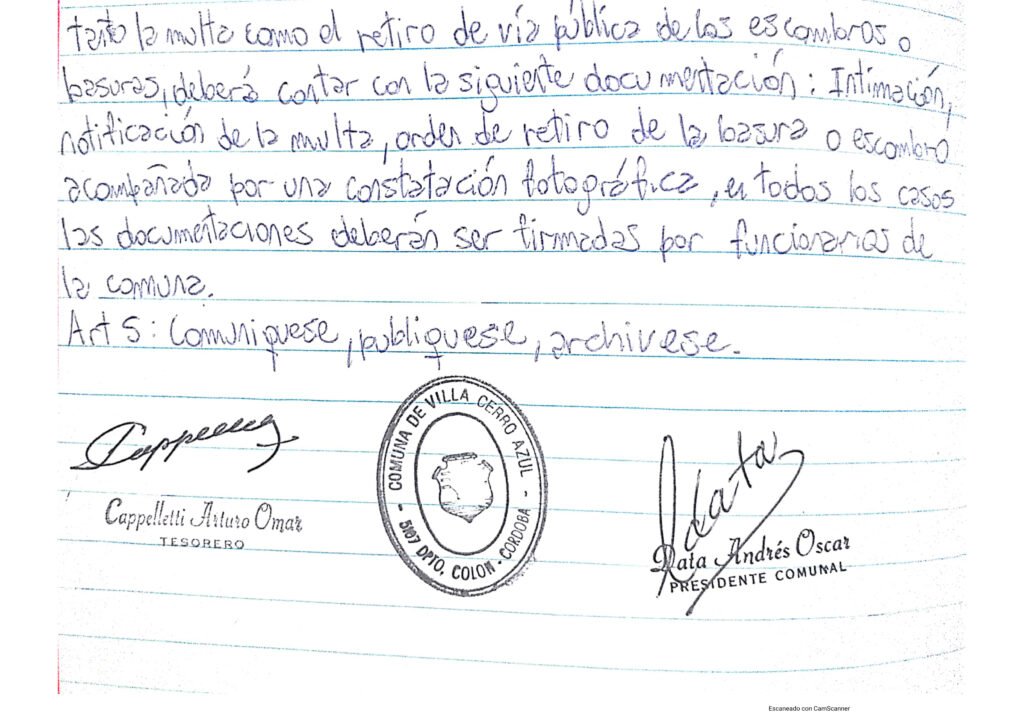 tanto la multa como el retiro de vía pública de los escombros o
basuras, deberá contar con la siguiente documentación: Intimación,
notificación de la multa, orden de retiro de la basura o escombro
acompañada por una constatación fotográfica, en todos los casos
las documentaciones deberán ser firmadas por funcionarios de
la comuna.
Art 5: Comuniquese, publiquese, archivese.
Cappelletti Arturo Omar
TESORERO
COMUNA DE VILLA CERRO AZUL
- 5107 DPTO. COLON - CORDOBA -
Rata Andrés Oscar
PRESIDENTE COMUNAL
Escaneado con CamScanner